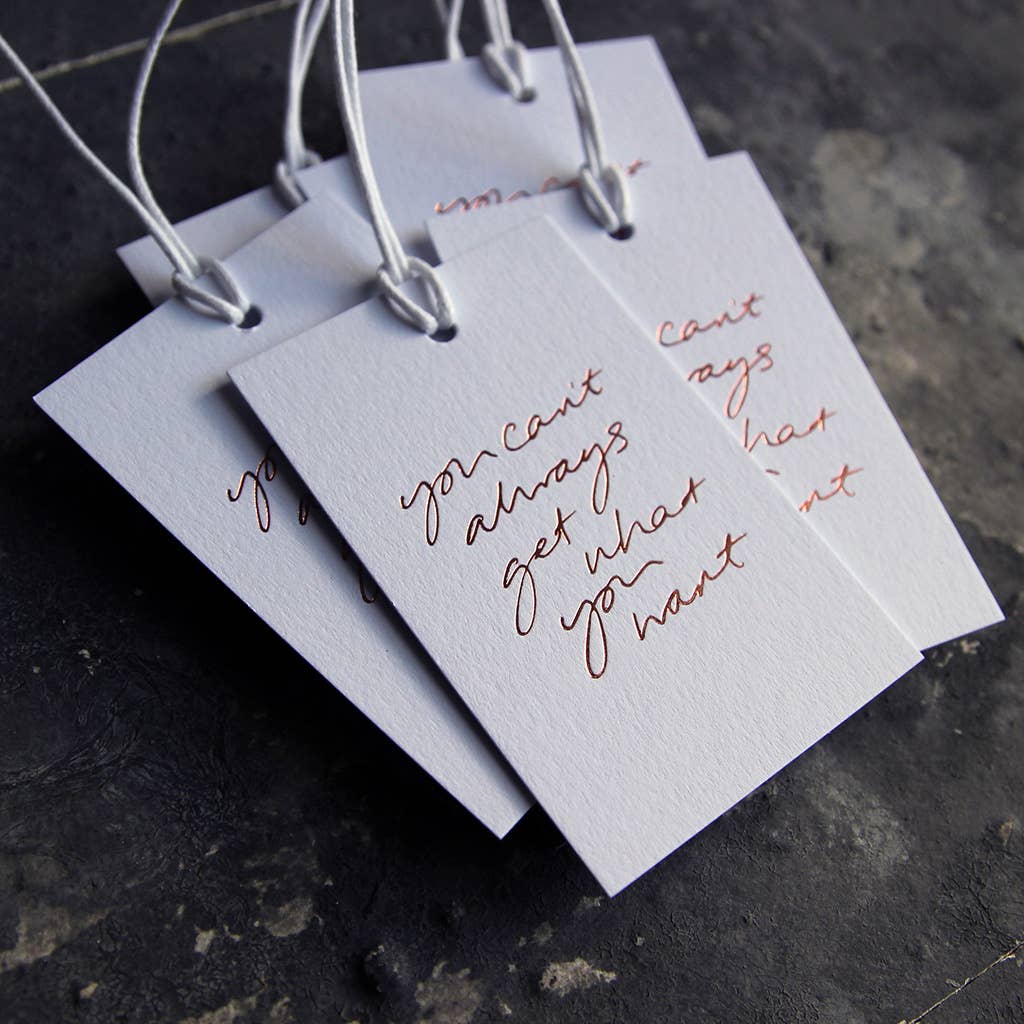 you can't
always
get what
you
want
you can't
can't
ays
hat
nt
yo